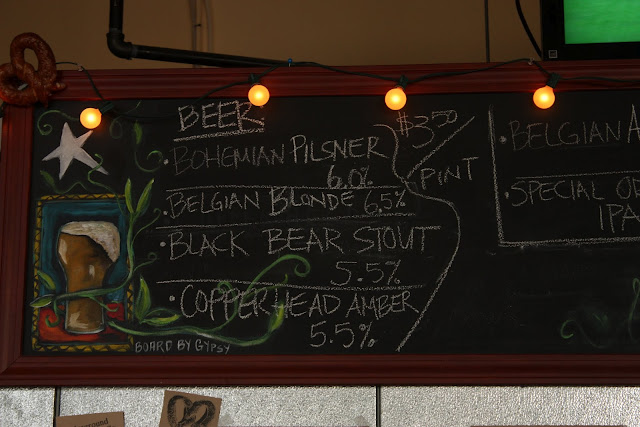 BEER
BOHEMIAN PILSNER
6.0%
BELGIAN BLONDE 6.5%
BLACK BEAR STOUT
5.5%
COPPERHEAD AMBER
5.5%
$3.50
PINT
BOARD BY GYPSY
BELGIAN
SPECIAL
IPA